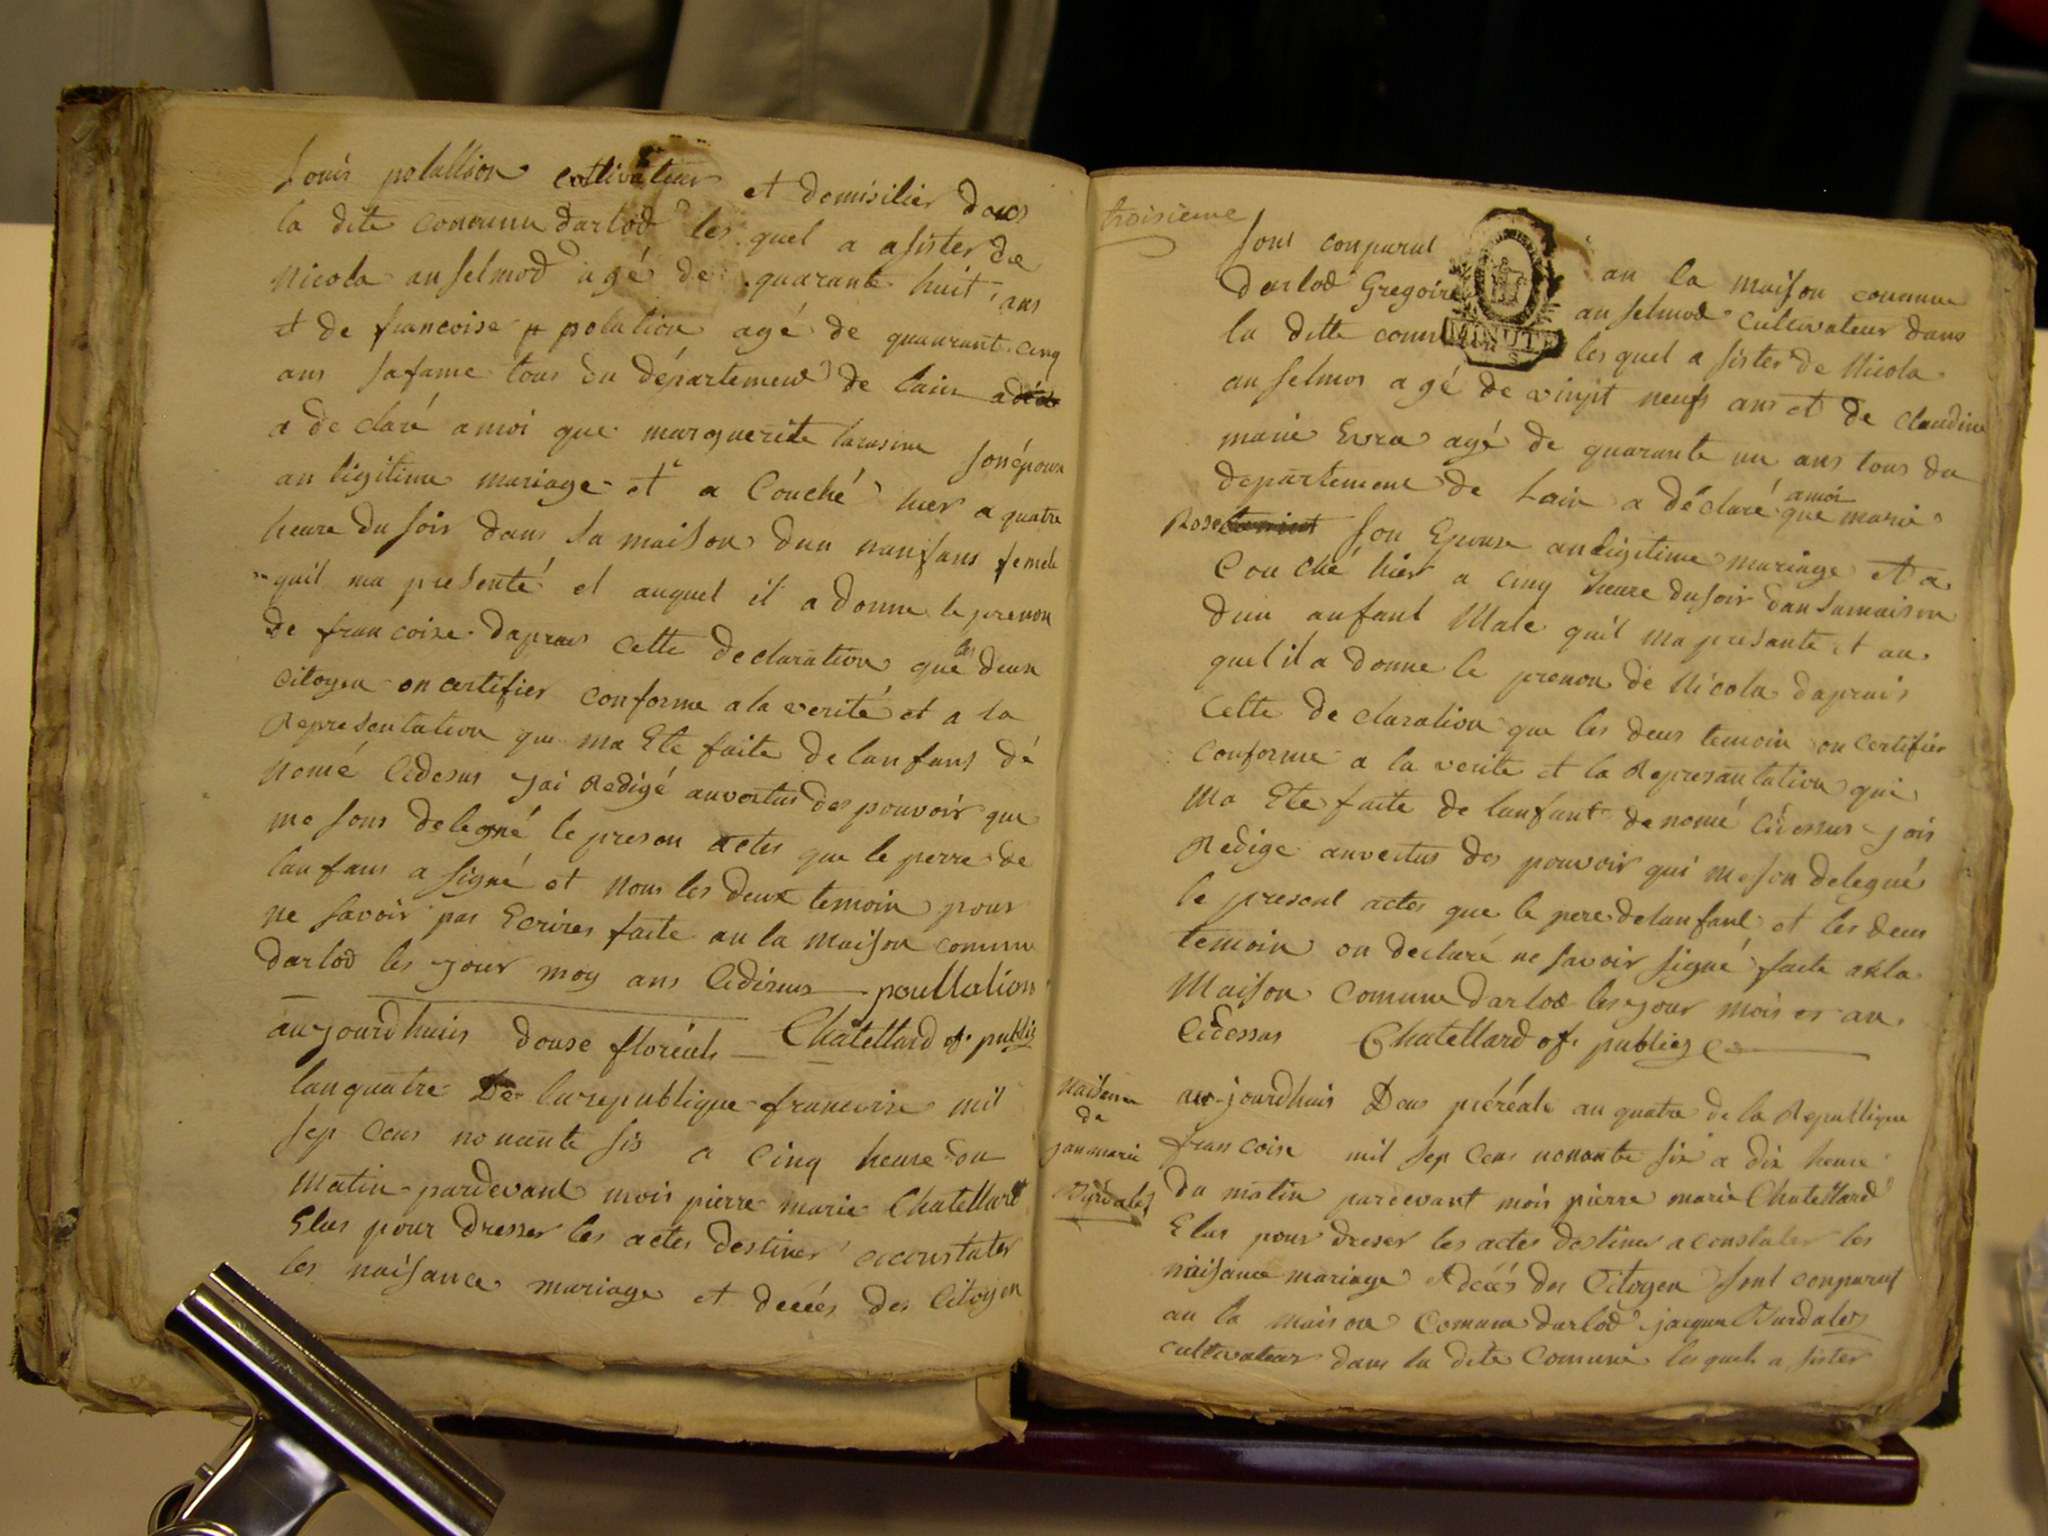 Louis polattion coltivateur et domisilier dans
la dite commune darlod les quel a asister de
Nicola anselmod agé de quarante huit ans
et de francoise polation agé de quaurant cinq
ans safame tous du département de lain
a de claré amoi que marguerite sonépouse
an ligitime mariage et a Couché hier a quatre
heure du soir dans sa maison dun nanfans femele
quil ma presenté et auquel il a donne le prenon
de francoise daprais cette declaration que les deux
Citoyen on certifier conforme a la verité et a la
Representation que ma Ete faite de lanfans dé
nomé Cidesus jai Redigé anvertus des pouvoir que
me sons delegné le preson actes que le perre de
lanfans a signé et nom les deux temoin pour
ne savoir pas Ecrires faite an la maison comune
darlod les jour moy ans Cidesus poullation
aujourdhuis douse floréals Chatellard of. public
lanquatre De la republique francoise mil
sep cens nonante sis a cinq heure du
matin pardevant mois pierre marie Chatellard
Elus pour dresser les actes destiner aconstater
les naisance mariage et décés des Citoyen
troisieme
sont conparut an la maison comune
darlod Gregoire anselmod cultivateur dans
la ditte comune les quel a sister de Nicola
MINUTE
anselmos agé de vinpt neufs ans et de claudine
marie Evra agé de quarante un ans tous du
departement de Lain a déclaré amoi que marie
Rose son Epouse anligitime mariage et a
Couché hier a cinq heure dusoir dan samaison
dun anfant Male quil ma presante et au
quel il a donne le prenon de Nicola daprais
Cette de claration que les deus temoin on certifier
Conforme a la verite et la Representation qui
Ma Ete faite de lanfant denomé Cidessus jais
Redige anvertus des pouvoir qui meson delegué
le present actes que le pere delanfant et les deus
temoin on declaré ne savoir signé faite anla
Maison Comune darlod les jour mois et an
Cidessus Chatellard of. publiq
Naisence
de
janmarie
Burdalet
aujourdhuis Deus préréale an quatre de la Republique
francoise mil sep cens nonante six a dix heure
du matin pardevant mois pierre marie Chatellard
Elus pour dreser les actes destiner a constater les
naisance mariage et décés des Citoyen sont conparut
an la maison Comune darlod jaque Burdalet
cultivateur dans la dite Comune les quels a sister